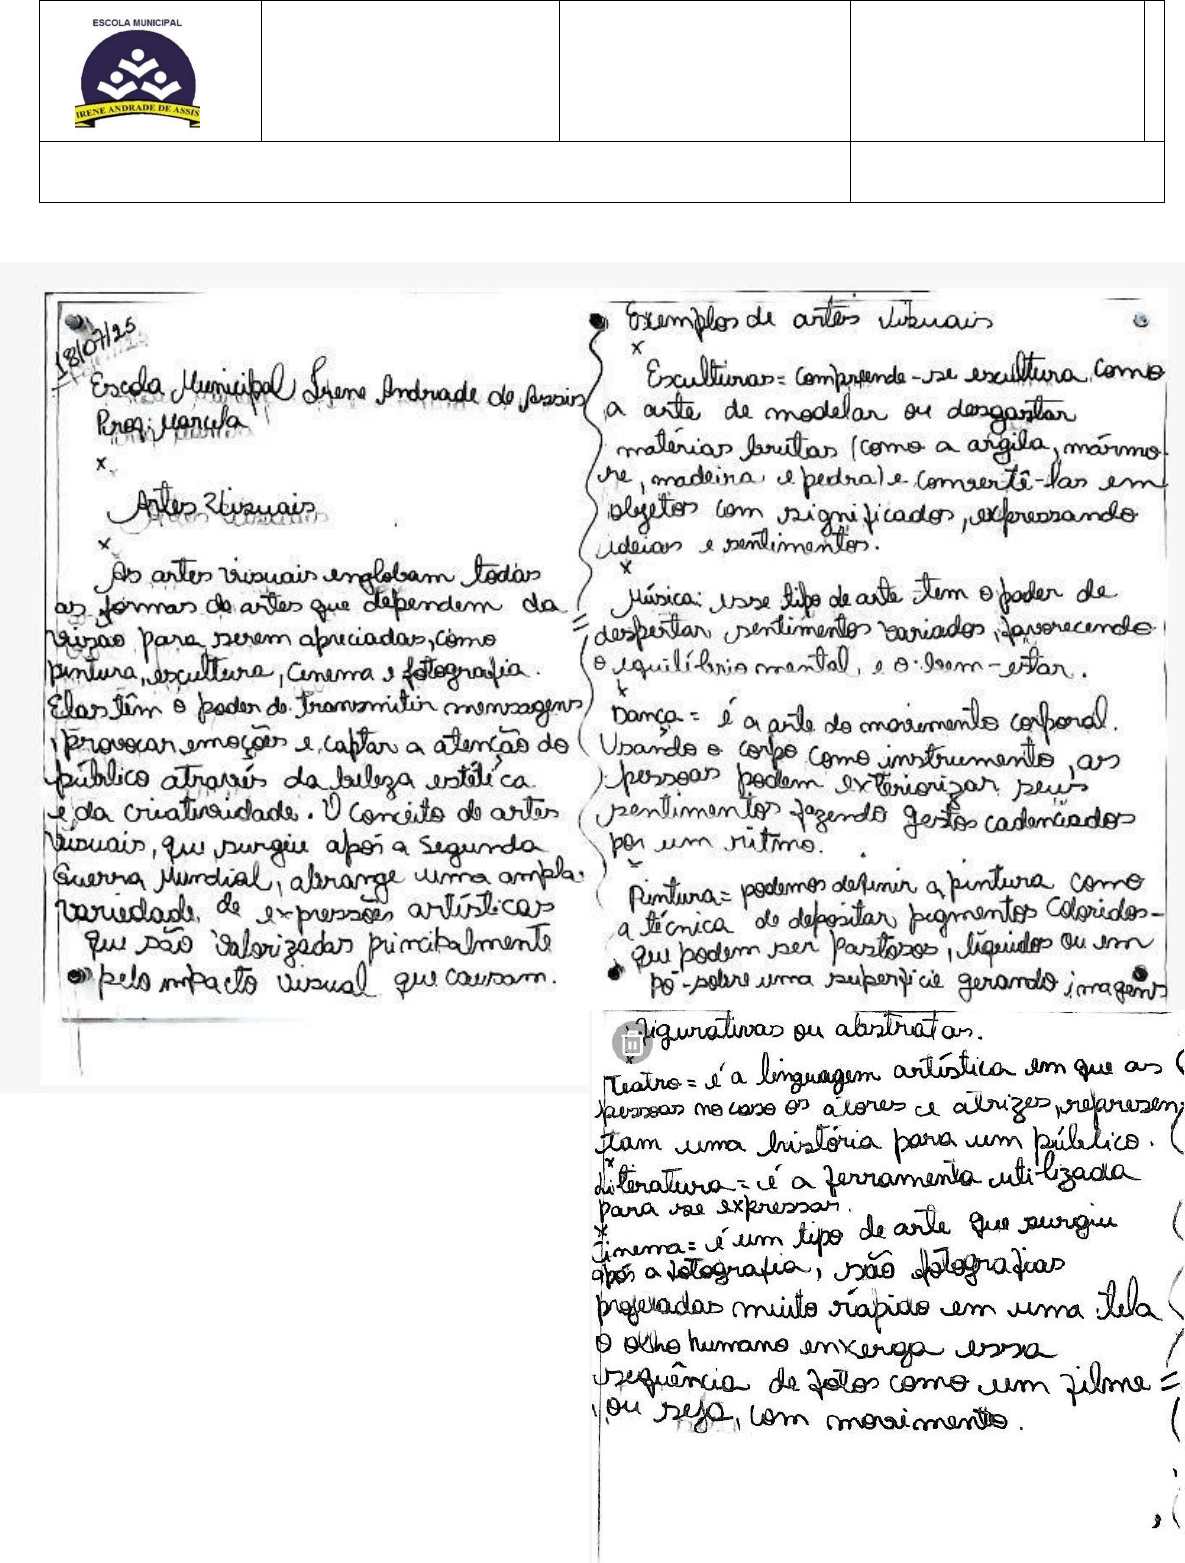 ESCOLA MUNICIPAL
IRENE ANDRADE DE ASSIS
18/07/25
Escola Municipal Irene Andrade de Assis
Prof: Márcula
x
Artes Visuais
x
As artes visuais englobam todas
as formas de artes que dependem da
visão para serem apreciadas, como
pintura, escultura, cinema e fotografia.
Elas têm o poder de transmitir mensagens
, provocar emoções e captar a atenção do
público através da beleza estética
e da criatividade. O conceito de artes
visuais, que surgiu após a Segunda
Guerra Mundial, abrange uma ampla
variedade de expressões artísticas
que são valorizadas principalmente
pelo impacto visual que causam.
Exemplos de artes visuais
x
Esculturas = compreende-se escultura como
a arte de modelar ou desgastar
matérias brutas (como a argila, mármo
re, madeira e pedra) e convertê-las em
objetos com significados, expressando
ideias e sentimentos.
x
Música: esse tipo de arte tem o poder de
despertar sentimentos variados, favorecendo
o equilíbrio mental, e o bem-estar.
x
Dança = é a arte do movimento corporal.
Usando o corpo como instrumento, as
pessoas podem exteriorizar seus
sentimentos fazendo gestos cadenciados
por um ritmo.
Pintura = podemos definir a pintura como
a técnica de depositar pigmentos coloridos-
que podem ser pastosos, líquidos ou em
pó-sobre uma superfície gerando imagens
figurativas ou abstratas.
x
Teatro = é a linguagem artística em que as
pessoas no caso os atores e atrizes, represen
tam uma história para um público.
x
Literatura = é a ferramenta utilizada
para se expressar.
x
Cinema = é um tipo de arte que surgiu
após a fotografia, são fotografias
projetadas muito rápido em uma tela
o olho humano enxerga essa
sequência de fotos como um filme
, ou seja, com movimento.